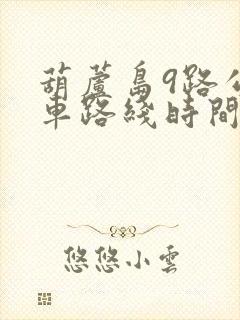 葫蘆島9路公
車路綫時間
悠悠小雲